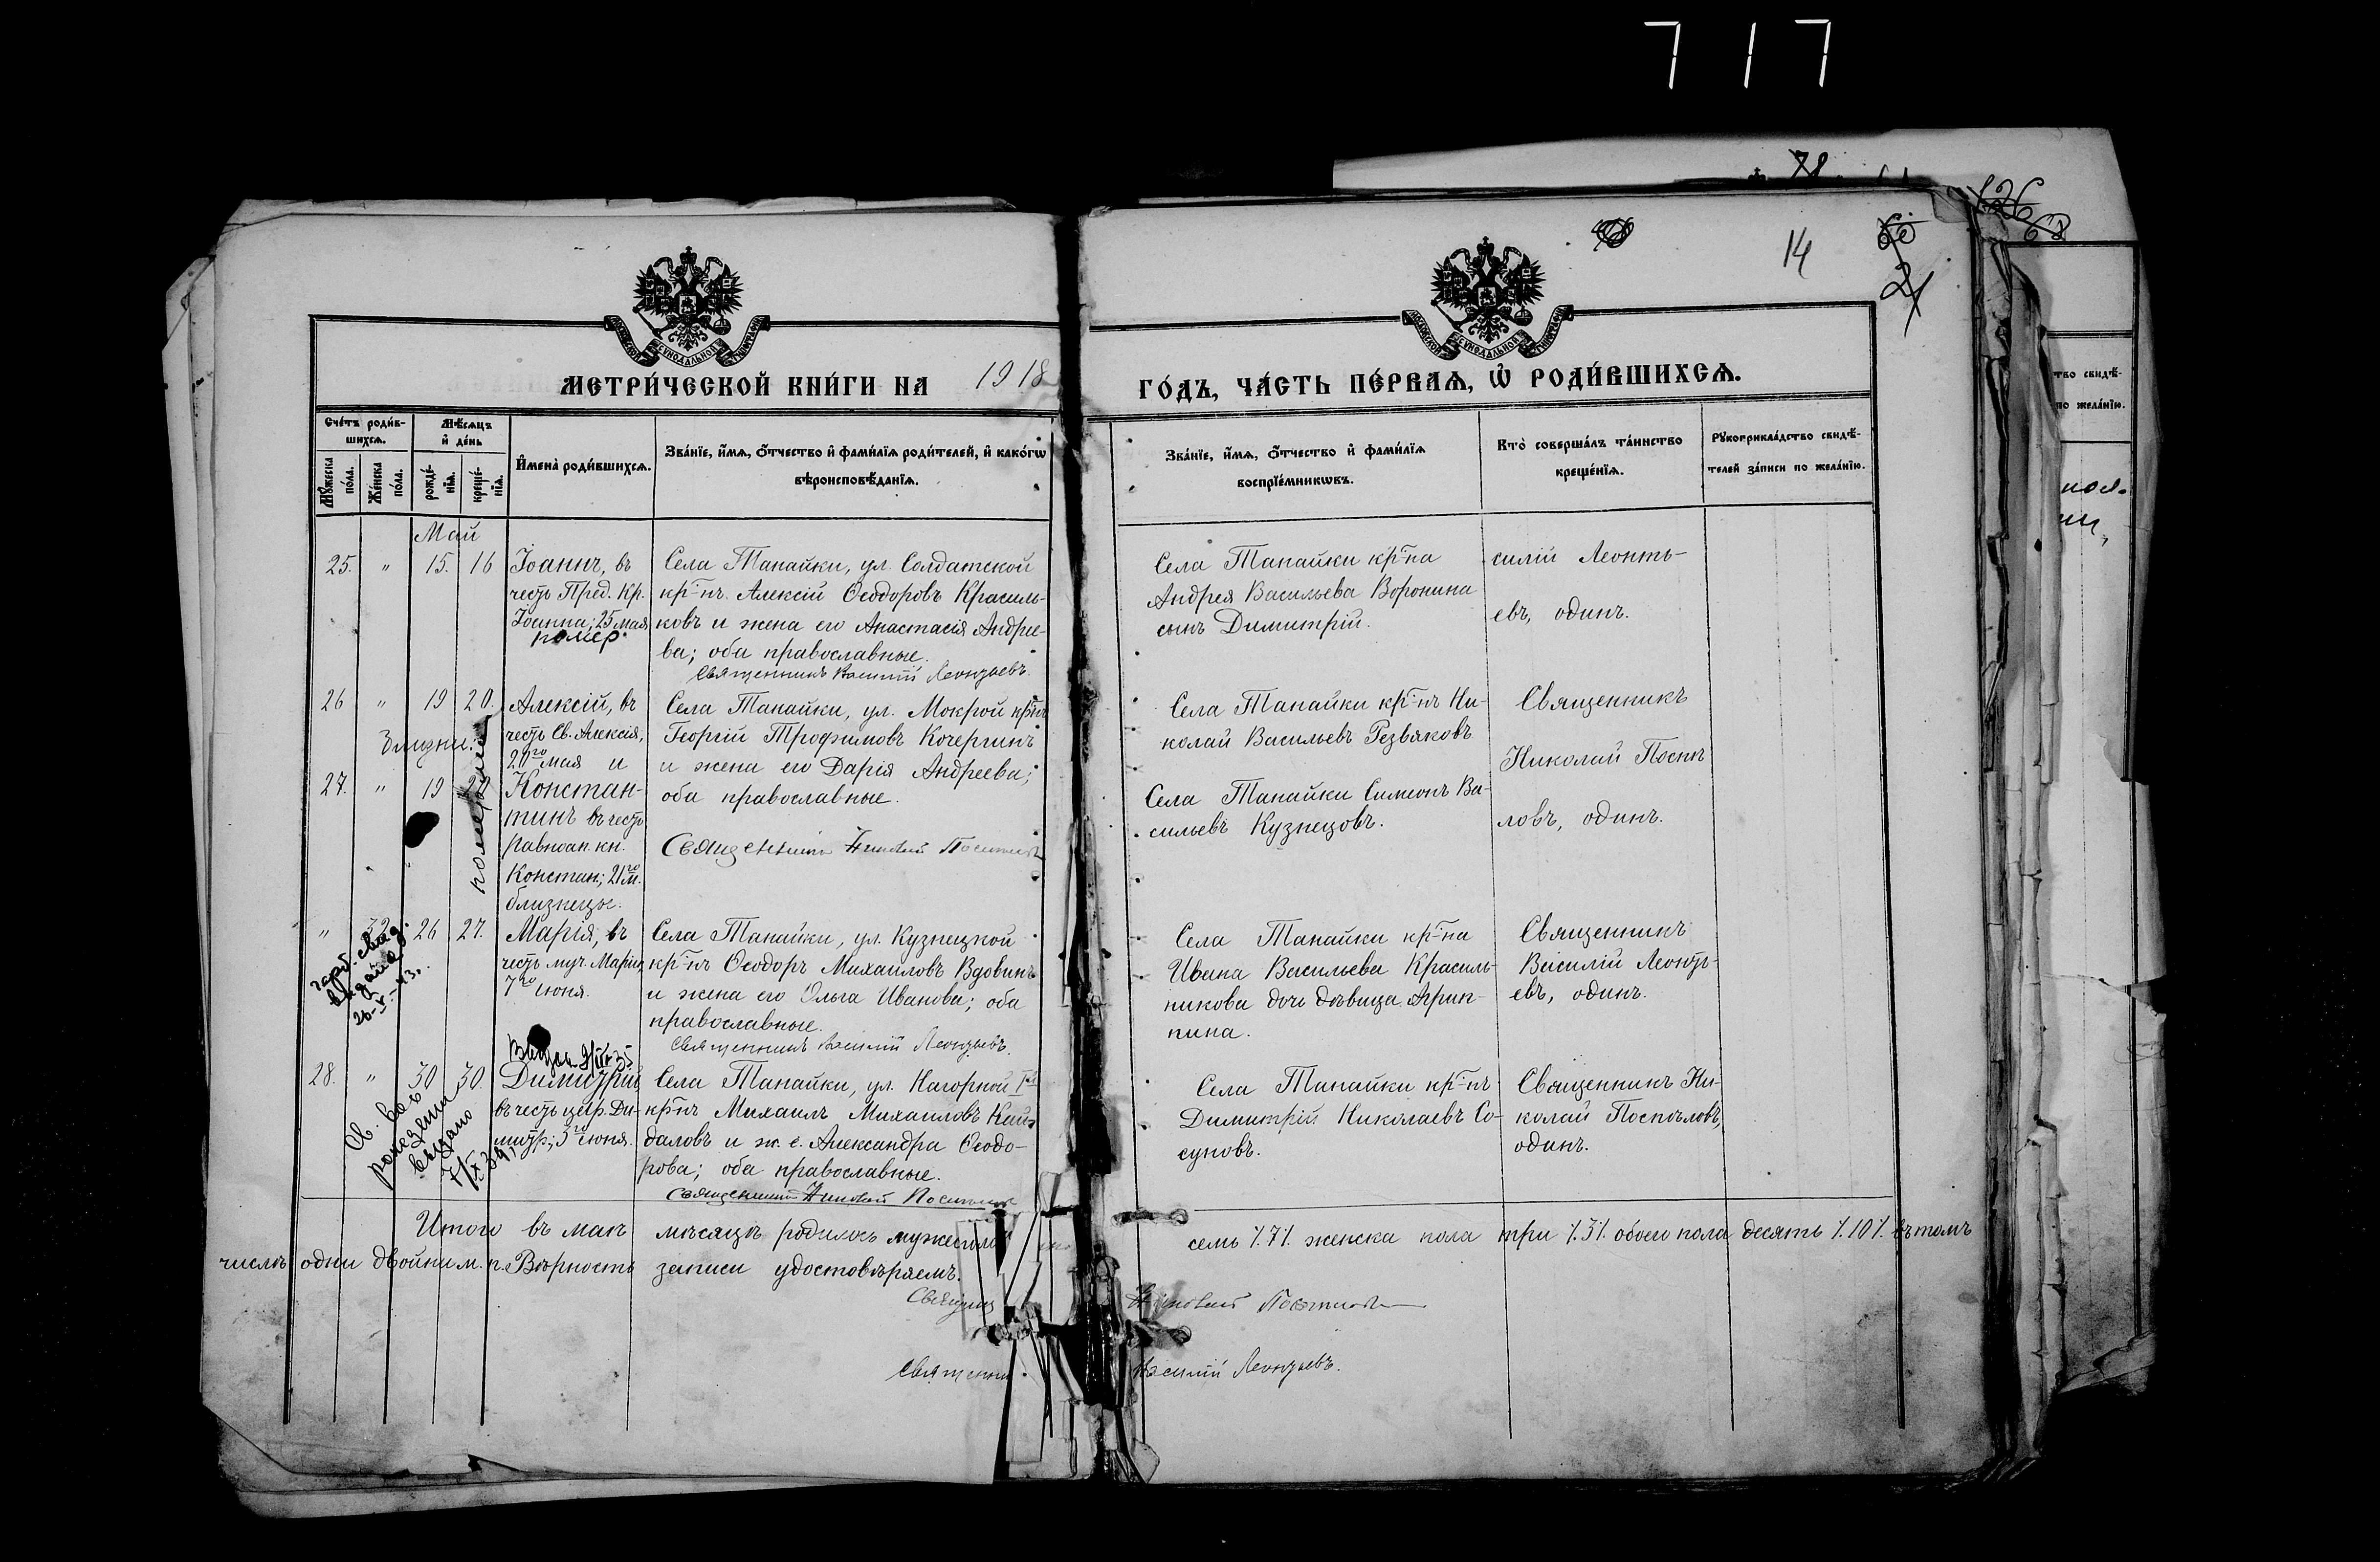 717
78
126
68
14
66
21
МЕТРИ́ЧЕСКОЙ КНИ́ГИ НА 1918
ГО́ДЪ, ЧА́СТЬ ПЕ́РВАѦ, Ѡ҆ РОДИ́ВШИХСѦ.
Сче́тъ роди́в-
шихсѧ.
Мѣ́сяцъ
и҆ де́нь
Мꙋ́жеска
по́ла.
Же́нска
по́ла.
рожде́-
нїѧ.
креще́-
нїѧ.
И҆мена̀ роди́вшихсѧ.
Зва́нїе, и҆́мѧ, ѻ҆́тчество и҆ фами́лїѧ роди́телей, и҆ како́гѡ
вѣроисповѣ́данїѧ.
Зва́нїе, и҆́мѧ, ѻ҆́тчество и҆ фами́лїѧ
воспрїе́мникѡвъ.
Кто̀ соверша́лъ та́инство
креще́нїѧ.
Рꙋкоприкла́дство свидѣ́-
телей за́писи по жела́нїю.
Май
25. " 15. 16
Іоаннъ, въ
честь Пред. Кр.
Іоанна; 25 мая
помер.
Села Танайки, ул. Солдатской
кр-нъ. Алексій Ѳеодоровъ Красиль-
ковъ и жена его Анастасія Андрее-
ва; оба православные.
Священникъ Василій Леонтьевъ.
Села Танайки кр-на
Андрея Васильева Воронина
сынъ Димитрій.
силій Леонть-
евъ, одинъ.
26 " 19 20.
Алексій, въ
честь Св. Алексія,
20го мая и
Села Танайки, ул. Мокрой кр-нъ
Георгій Трофимовъ Кочергинъ
и жена его Дарія Андреева;
оба православные.
Священникъ Николай Поспѣловъ
Села Танайки кр-нъ Ни-
колай Васильевъ Резвяковъ
Священникъ
Николай Поспѣ
ловъ, одинъ.
27. " 19 20
померли
Констан-
тинъ въ честь
равноап. кн.
Констан; 21го м.
близнецы.
Села Танайки Симеонъ Ва-
сильевъ Кузнецовъ.
" 32. 26 27.
Марія, въ
честь муч. Маріи,
7го іюня.
Села Танайки, ул. Кузнецкой
кр-нъ Ѳеодоръ Михаиловъ Вдовинъ
и жена его Ольга Иванова; оба
православные.
Священникъ Василій Леонтьевъ.
Села Танайки кр-на
Ивана Васильева Красиль-
никова дочь дѣвица Агрип-
пина.
Священникъ
Василій Леонть-
евъ, одинъ.
28. " 30 30.
Св.
рождении
выдано
Димитрій
въ честь цар. Ди-
митр; 3го іюня.
Села Танайки, ул. Нагорной
кр-нъ Михаилъ Михаиловъ
даловъ и ж. е. Александра Ѳеодо-
рова; оба православные.
Священникъ Николай Поспѣловъ
Села Танайки кр-нъ
Димитрій Николаевъ Со-
суновъ.
Священникъ Ни-
колай Поспѣловъ,
одинъ.
Итого въ маѣ мѣсяцѣ родилось мужескаго
семь /.7/. женска пола три /.3/. обоего пола десять /.10/. въ томъ
числѣ одни двойни м. п. Вѣрность записи удостовѣряемъ.
Священ
Николай Поспѣловъ
Священни
Василій Леонтьевъ.
тво свидѣ́-
по жела́нїю.